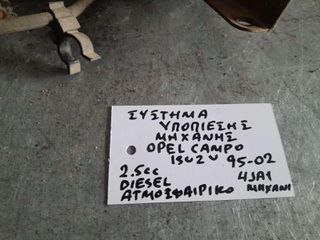 ΣΥΣΤΗΜΑ
ΥΠΟΠΙΕΣΗΣ
ΜΗΧΑΝΗΣ
OPEL CAMPO
ISUZU 95-02
2.5cc 4JA1
DIESEL ΜΗΧΑΝΙ
ΑΤΜΟΣΦΑΙΡΙΚΟ